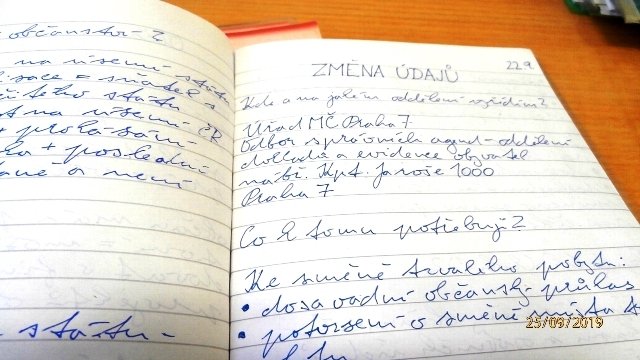 občanství?
na území státu
= sňatek s
státu
na území ČR
+ prohlášení
+ poslední
a není
státu-
ZMĚNA ÚDAJŮ
22.9.
Kde a na jakém oddělení vyřídím?
Úřad MČ Praha 7
Odbor správních agend - oddělení
dokladů a evidence obyvatel
nábř. Kpt. Jaroše 1000
Praha 7
Co k tomu potřebuji?
Ke změně trvalého pobytu:
• dosavadní občanský průkaz
• potvrzení o změně místa t
25/09/2019